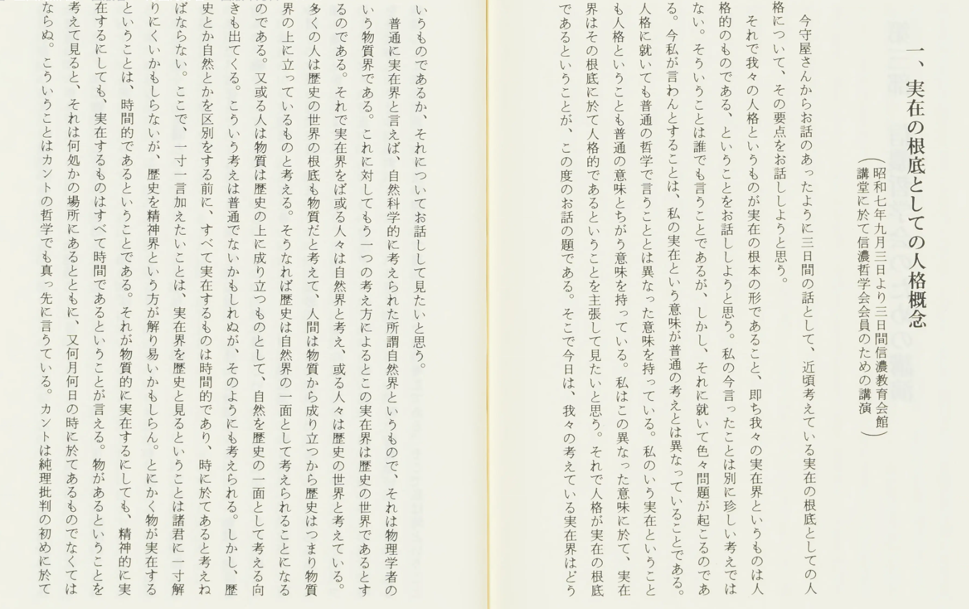 一、実在の根底としての人格概念
（昭和七年九月三日より三日間信濃教育会館
講堂に於て信濃哲学会会員のための講演）
今守屋さんからお話のあったように三日間の話として、近頃考えている実在の根底としての人
格について、その要点をお話ししようと思う。
それで我々の人格というものが実在の根本の形であること、即ち我々の実在界というものは人
格的のものである、ということをお話ししようと思う。私の今言ったことは別に珍しい考えでは
ない。そういうことは誰でも言うことであるが、しかし、それに就いて色々問題が起こるのであ
る。今私が言わんとすることは、私の実在という意味が普通の考えとは異なっていることである。
人格に就いても普通の哲学で言うこととは異なった意味を持っている。私のいう実在ということ
も人格ということも普通の意味とちがう意味を持っている。私はこの異なった意味に於て、実在
界はその根底に於て人格的であるということを主張して見たいと思う。それで人格が実在の根底
であるということが、この度のお話の題である。そこで今日は、我々の考えている実在界はどう
いうものであるか、それについてお話しして見たいと思う。
普通に実在界と言えば、自然科学的に考えられた所謂自然界というもので、それは物理学者の
いう物質界である。これに対してもう一つの考え方によるとこの実在界は歴史の世界であるとす
るのである。それで実在界をば或る人々は自然界と考え、或る人々は歴史の世界と考えている。
多くの人は歴史の世界の根底も物質だと考えて、人間は物質から成り立つから歴史はつまり物質
界の上に立っているものと考える。そうなれば歴史は自然界の一面として考えられることになる
のである。又或る人は物質は歴史の上に成り立つものとして、自然を歴史の一面として考える向
きも出てくる。こういう考えは普通でないかもしれぬが、そのようにも考えられる。しかし、歴
史とか自然とかを区別をする前に、すべて実在するものは時間的であり、時に於てあると考えね
ばならない。ここで、一寸一言加えたいことは、実在界を歴史と見るということは諸君に一寸解
りにくいかもしらないが、歴史を精神界という方が解り易いかもしらん。とにかく物が実在する
ということは、時間的であるということである。それが物質的に実在するにしても、精神的に実
在するにしても、実在するものはすべて時間であるということが言える。物があるということを
考えて見ると、それは何処かの場所にあるとともに、又何月何日の時に於てあるものでなくては
ならぬ。こういうことはカントの哲学でも真っ先に言うている。カントは純理批判の初めに於て